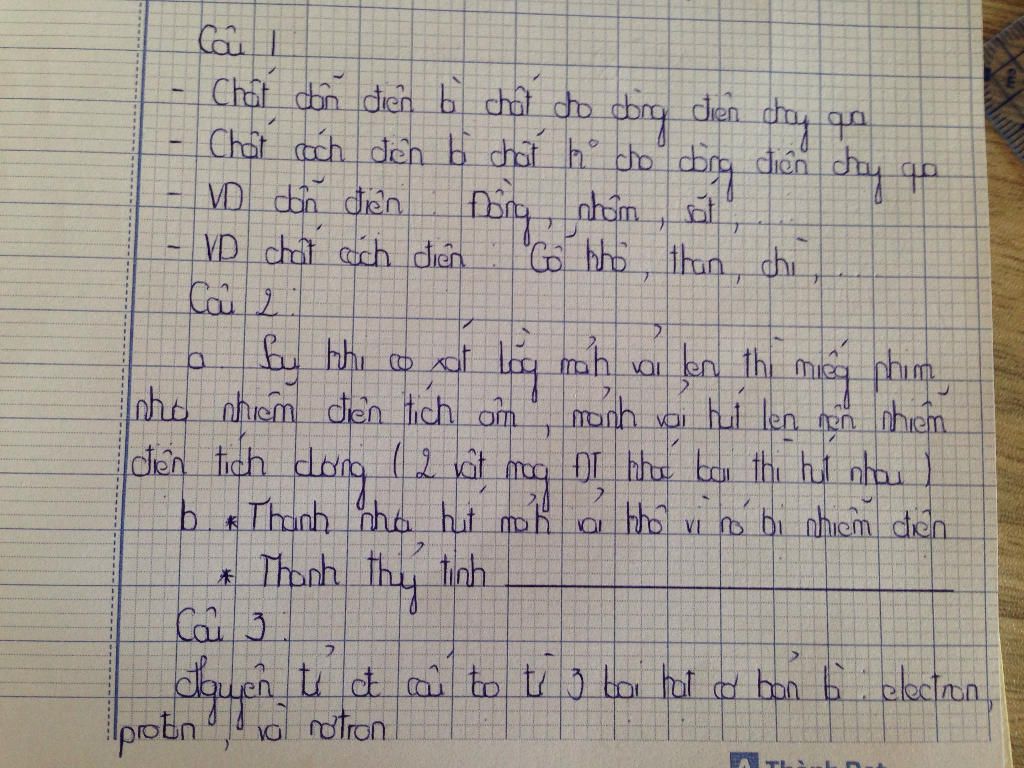 Câu 1
- Chất dẫn điện là chất cho dòng điện chạy qua
- Chất cách điện là chất k° cho dòng điện chạy qua
- VD dẫn điện : Đồng, nhôm, sắt, ...
- VD chất cách điện : Gỗ khô, than, chì, ...
Câu 2 :
a. Say khi cọ xát bằng mảnh vải len thì miếng phim
nhựa nhiễm điện tích âm, mảnh vải hút len nên nhiễm
điện tích dương ( 2 vật mag ĐT khác loại thì hút nhau )
b. * Thanh nhựa hút mảnh vải khô vì nó bị nhiễm điện
* Thanh thủy tinh
Câu 3 :
Nguyên tử đc cấu tạo từ 3 loại hạt cơ bản là : electron,
proton, và nơtron
Thành Đạt